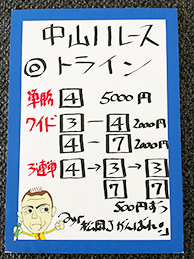 中山11レース
◎トライン
単勝 4 5000円
ワイド 3 ー 4 2000円
4 ー 7 2000円
3連単 4 → 3 → 3
7 7
500円ずつ
松岡Jがんばれ